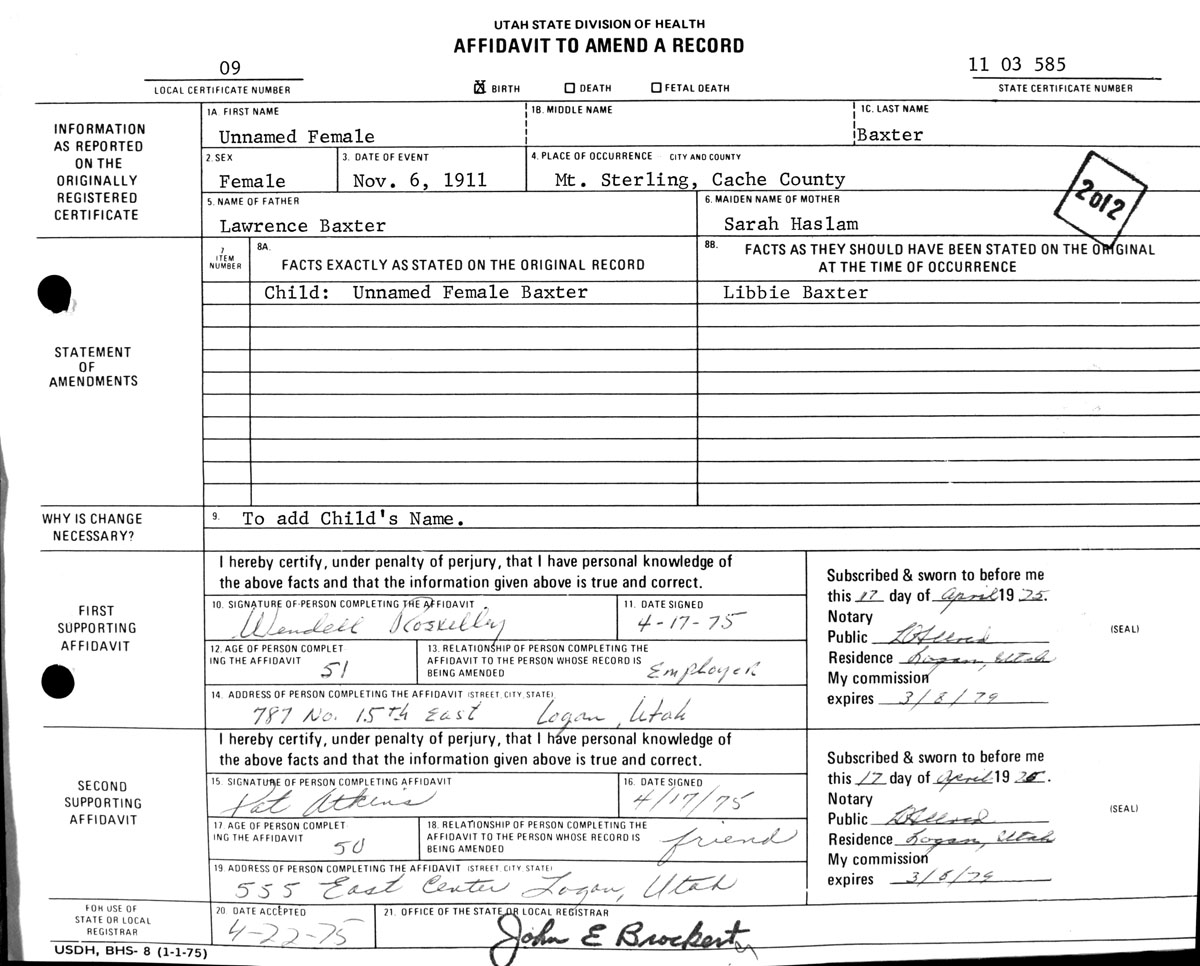 UTAH STATE DIVISION OF HEALTH
AFFIDAVIT TO AMEND A RECORD
09
LOCAL CERTIFICATE NUMBER
☒ BIRTH ☐ DEATH ☐ FETAL DEATH
11 03 585
STATE CERTIFICATE NUMBER
INFORMATION
AS REPORTED
ON THE
ORIGINALLY
REGISTERED
CERTIFICATE
1A. FIRST NAME
Unnamed Female
1B. MIDDLE NAME
1C. LAST NAME
Baxter
2. SEX
Female
3. DATE OF EVENT
Nov. 6, 1911
4. PLACE OF OCCURRENCE - CITY AND COUNTY
Mt. Sterling, Cache County
2 of 2
5. NAME OF FATHER
Lawrence Baxter
6. MAIDEN NAME OF MOTHER
Sarah Haslam
STATEMENT
OF
AMENDMENTS
7
ITEM
NUMBER
8A.
FACTS EXACTLY AS STATED ON THE ORIGINAL RECORD
8B. FACTS AS THEY SHOULD HAVE BEEN STATED ON THE ORIGINAL
AT THE TIME OF OCCURRENCE
Child: Unnamed Female Baxter
Libbie Baxter
WHY IS CHANGE
NECESSARY?
9. To add Child's Name.
FIRST
SUPPORTING
AFFIDAVIT
I hereby certify, under penalty of perjury, that I have personal knowledge of
the above facts and that the information given above is true and correct.
10. SIGNATURE OF PERSON COMPLETING THE AFFIDAVIT
Wendell Roskelley
11. DATE SIGNED
4-17-75
12. AGE OF PERSON COMPLET
ING THE AFFIDAVIT 51
13. RELATIONSHIP OF PERSON COMPLETING THE
AFFIDAVIT TO THE PERSON WHOSE RECORD IS
BEING AMENDED
Employer
14. ADDRESS OF PERSON COMPLETING THE AFFIDAVIT (STREET, CITY, STATE)
787 No. 15th East Logan, Utah
Subscribed & sworn to before me
this 17 day of April 19 75.
Notary
Public
Residence Logan, Utah
My commission
expires 3/8/79
(SEAL)
SECOND
SUPPORTING
AFFIDAVIT
I hereby certify, under penalty of perjury, that I have personal knowledge of
the above facts and that the information given above is true and correct.
15. SIGNATURE OF PERSON COMPLETING AFFIDAVIT
Pat Atkins
16. DATE SIGNED
4/17/75
17. AGE OF PERSON COMPLET
ING THE AFFIDAVIT 50
18. RELATIONSHIP OF PERSON COMPLETING THE
AFFIDAVIT TO THE PERSON WHOSE RECORD IS
BEING AMENDED
friend
19. ADDRESS OF PERSON COMPLETING THE AFFIDAVIT (STREET, CITY, STATE)
555 East Center Logan, Utah
Subscribed & sworn to before me
this 17 day of April 19 75.
Notary
Public
Residence Logan, Utah
My commission
expires 3/8/79
(SEAL)
FOR USE OF
STATE OR LOCAL
REGISTRAR
20. DATE ACCEPTED
4-22-75
21. OFFICE OF THE STATE OR LOCAL REGISTRAR
John E Brockert
USDH, BHS- 8 (1-1-75)